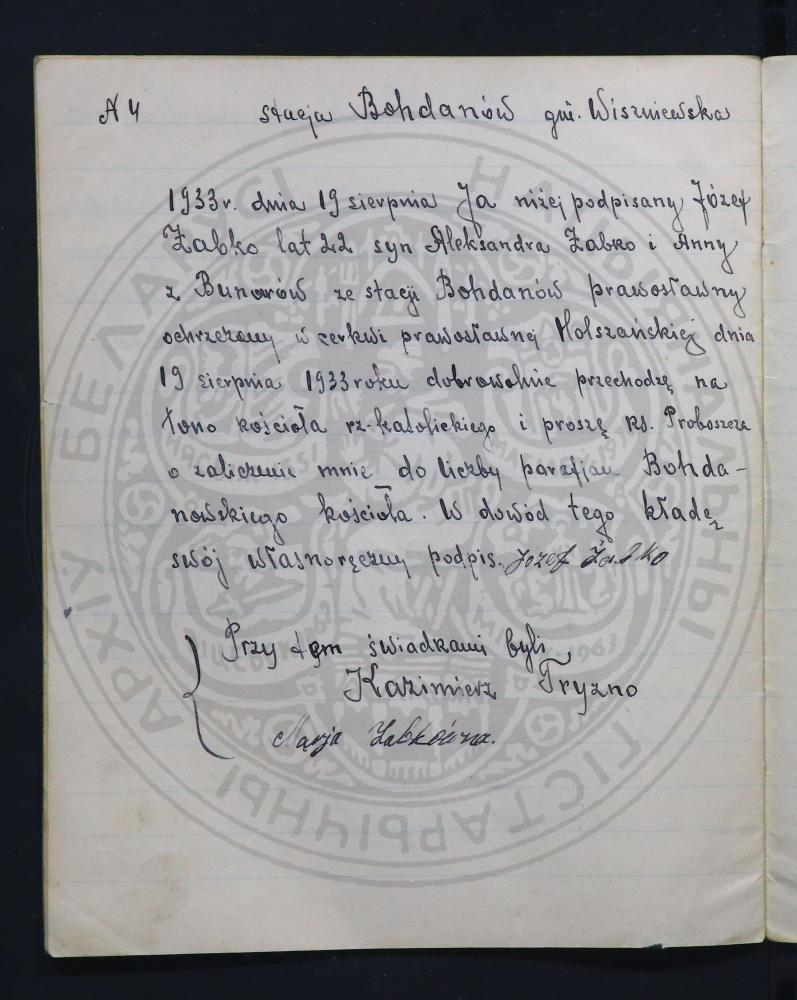 № 4 stacja Bohdanów gm. Wiszniewska
1933 r. dnia 19 sierpnia Ja niżej podpisany Józef
Żabko lat 22 syn Aleksandra Żabko i Anny
z Bunarów ze stacji Bohdanów prawosławny
ochrzczony w cerkwi prawosławnej Holszańskiej dnia
19 sierpnia 1933 roku dobrowolnie przechodzę na
łono kościoła rz-katolickiego i proszę ks. Proboszcza
o zaliczenie mnie do liczby parafjan Bohda-
nowskiego kościoła. W dowód tego kładę
swój własnoręczny podpis. Józef Żabko
Przy tem świadkami byli
Kazimierz Tryzno
Marja Żabkówna.
НАЦЫЯНАЛЬНЫ ГІСТАРЫЧНЫ АРХІЎ БЕЛАРУСІ